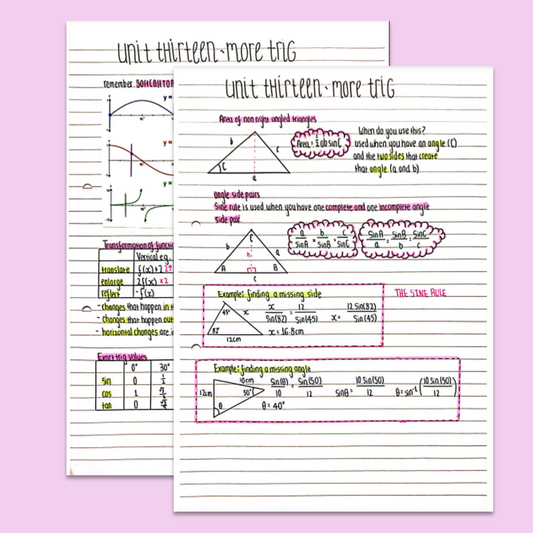 unit thirteen · more trig
remember SOHCAHTOA
y =
y =
y =
Transformation of functio
Vertical e.g.
translate f(x)+2
enlarge 2f(x) ×2
reflect -f(x)
- changes that happen in
- changes that happen out
- horizontal changes are
Exact trig values
0° 30°
sin 0 1/2
cos 1 √3/2
tan 0
unit thirteen · more trig
Area of non right angled triangles
b c
C
a
Area = 1/2 ab sin C
When do you use this?
used when you have an angle (C)
and the two sides that create
that angle (a and b)
angle side pairs
Sine rule is used when you have one complete and one incomplete angle
side pair.
C
b a
h
A B
c
a/sinA = b/sinB = c/sinC
sinA/a = sinB/b = sinC/c
Example: finding a missing side
THE SINE RULE
45° x
82°
12cm
x/sin(82) = 12/sin(45)
x = 12sin(82)/sin(45)
x = 16.8cm
Example: finding a missing angle
10cm
12cm 50°
θ
sin(θ)/10 = sin(50)/12
sinθ = 10sin(50)/12
θ = sin⁻¹(10sin(50)/12)
θ = 40°